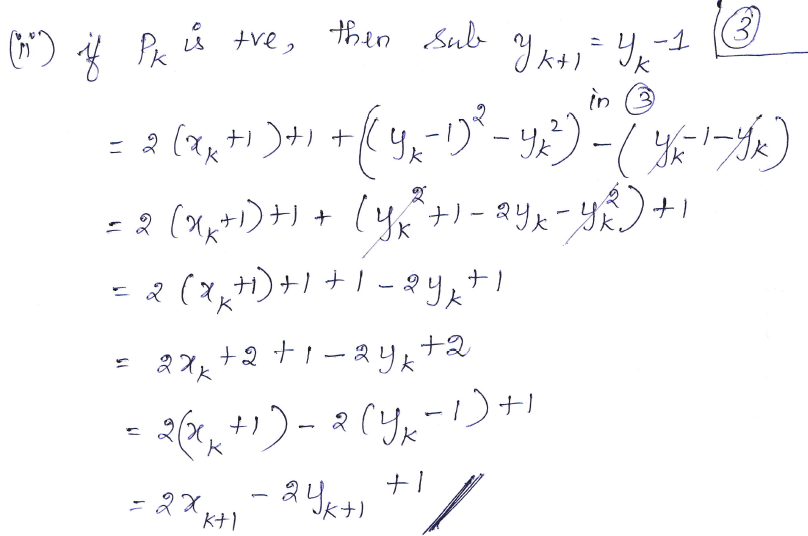 (ii) if Pₖ is +ve, then sub yₖ₊₁ = yₖ-1 ③
in ③
= 2(xₖ+1)+1 + ((yₖ-1)² - yₖ²) - (yₖ-1-yₖ)
= 2(xₖ+1)+1 + (yₖ²+1-2yₖ-yₖ²)+1
= 2(xₖ+1)+1+1-2yₖ+1
= 2xₖ+2+1-2yₖ+2
= 2(xₖ+1)-2(yₖ-1)+1
= 2xₖ₊₁ - 2yₖ₊₁ +1